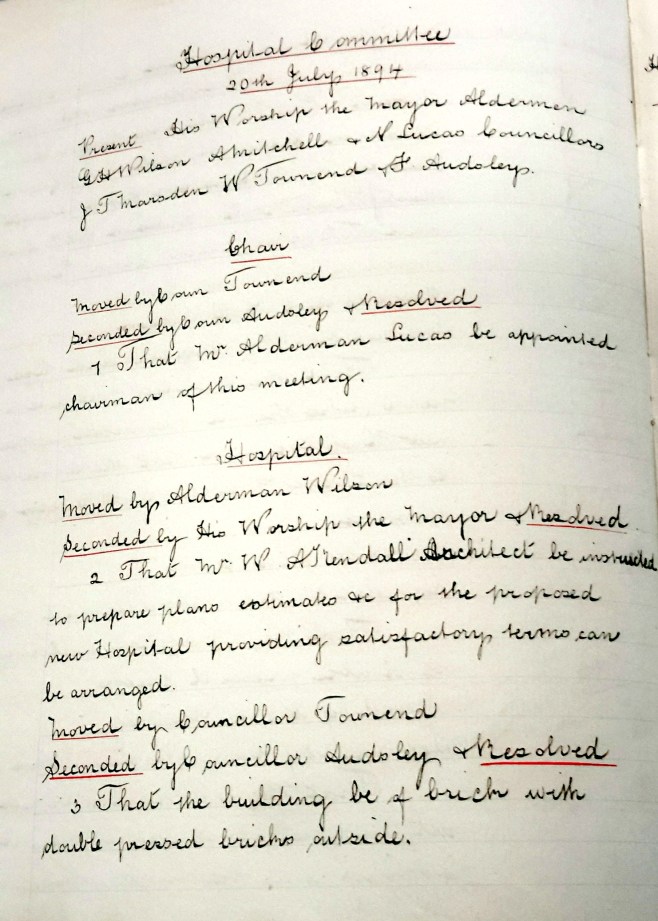 Hospital Committee
20th July 1894
Present His Worship the Mayor Aldermen
G H Wilson A Mitchell & N Lucas Councillors
J T Marsden W Townend & F Audsley.
Chair
Moved by Coun Townend
Seconded by Coun Audsley & Resolved
1 That Mr. Alderman Lucas be appointed
chairman of this meeting.
Hospital.
Moved by Alderman Wilson
Seconded by His Worship the Mayor & Resolved
2 That Mr. W A Kendall Architect be instructed
to prepare plans estimates &c for the proposed
new Hospital providing satisfactory terms can
be arranged.
Moved by Councillor Townend
Seconded by Councillor Audsley & Resolved
3 That the building be of brick with
double pressed bricks outside.